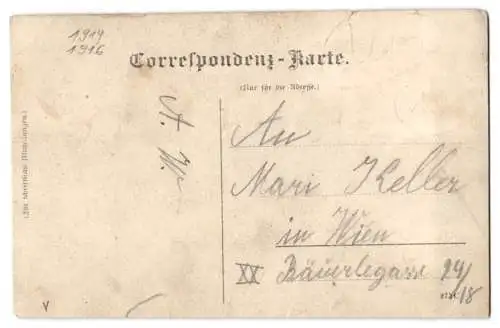 1914
1916
Correspondenz-Karte.
(Nur für die Adresse.)
(Für schriftliche Mittheilungen.)
A. W.
An
Mari Keller
in Wien
XX Bäuerlegasse 24/18
V